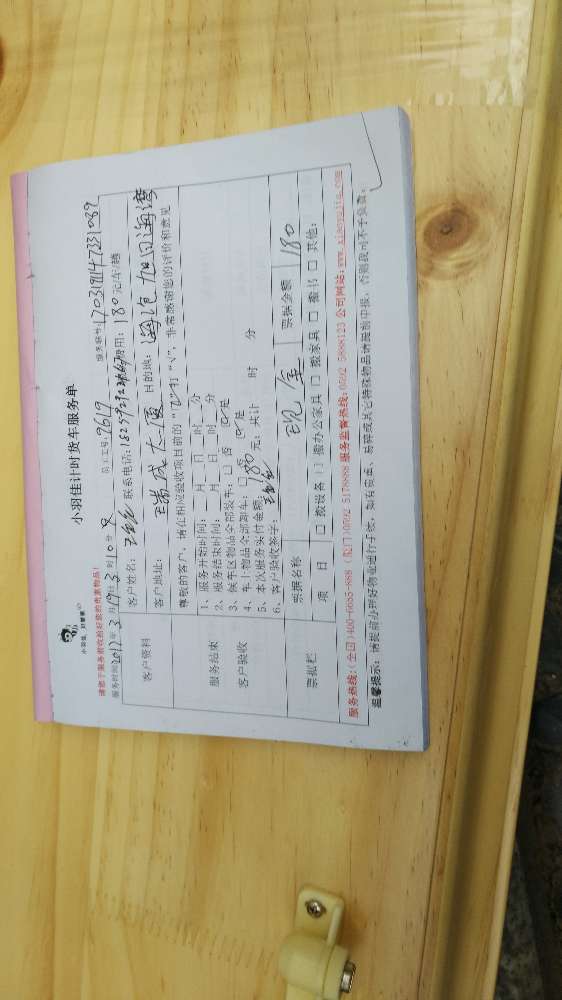 小羽佳计时货车服务单
小羽佳，对顾家
请您于服务前收拾好您的贵重物品!
服务时间 2017年3月 19 时10分 员工工号: 9619 服务联单: 
客户资料 客户姓名: 联系电话: 费用: 180元/车/趟
客户地址: 瑞成大厦 目的地: 海沧 旭日海湾
尊敬的客户, 请在相应验收项目前的“口”打“√”, 非常感谢您的评价和意见
服务结束 客户验收
1、服务开始时间: 月 日 时 分
2、服务结束时间: 月 日 时 分
3、候车区物品全部装车: □ 否 是
4、车上物品全部卸车: □ 否 是
5、本次服务实付金额: 180 元; 共计 时 分
6、客户验收签字:
票据栏 票据名称 现金 票据金额 180
项 目 □ 搬设备 □ 搬办公家具 □ 搬家具 □ 搬书 □ 其他:
服务热线:(全国)400-6655-888 (厦门)0592 5178888 服务监督热线:0592 5888123 公司网站:www.xiaoyujia.com
温馨提示: 请提前办理好物业进行手续, 如有贵重、易碎或其它特殊物品请提前申报, 否则我司不予负责;